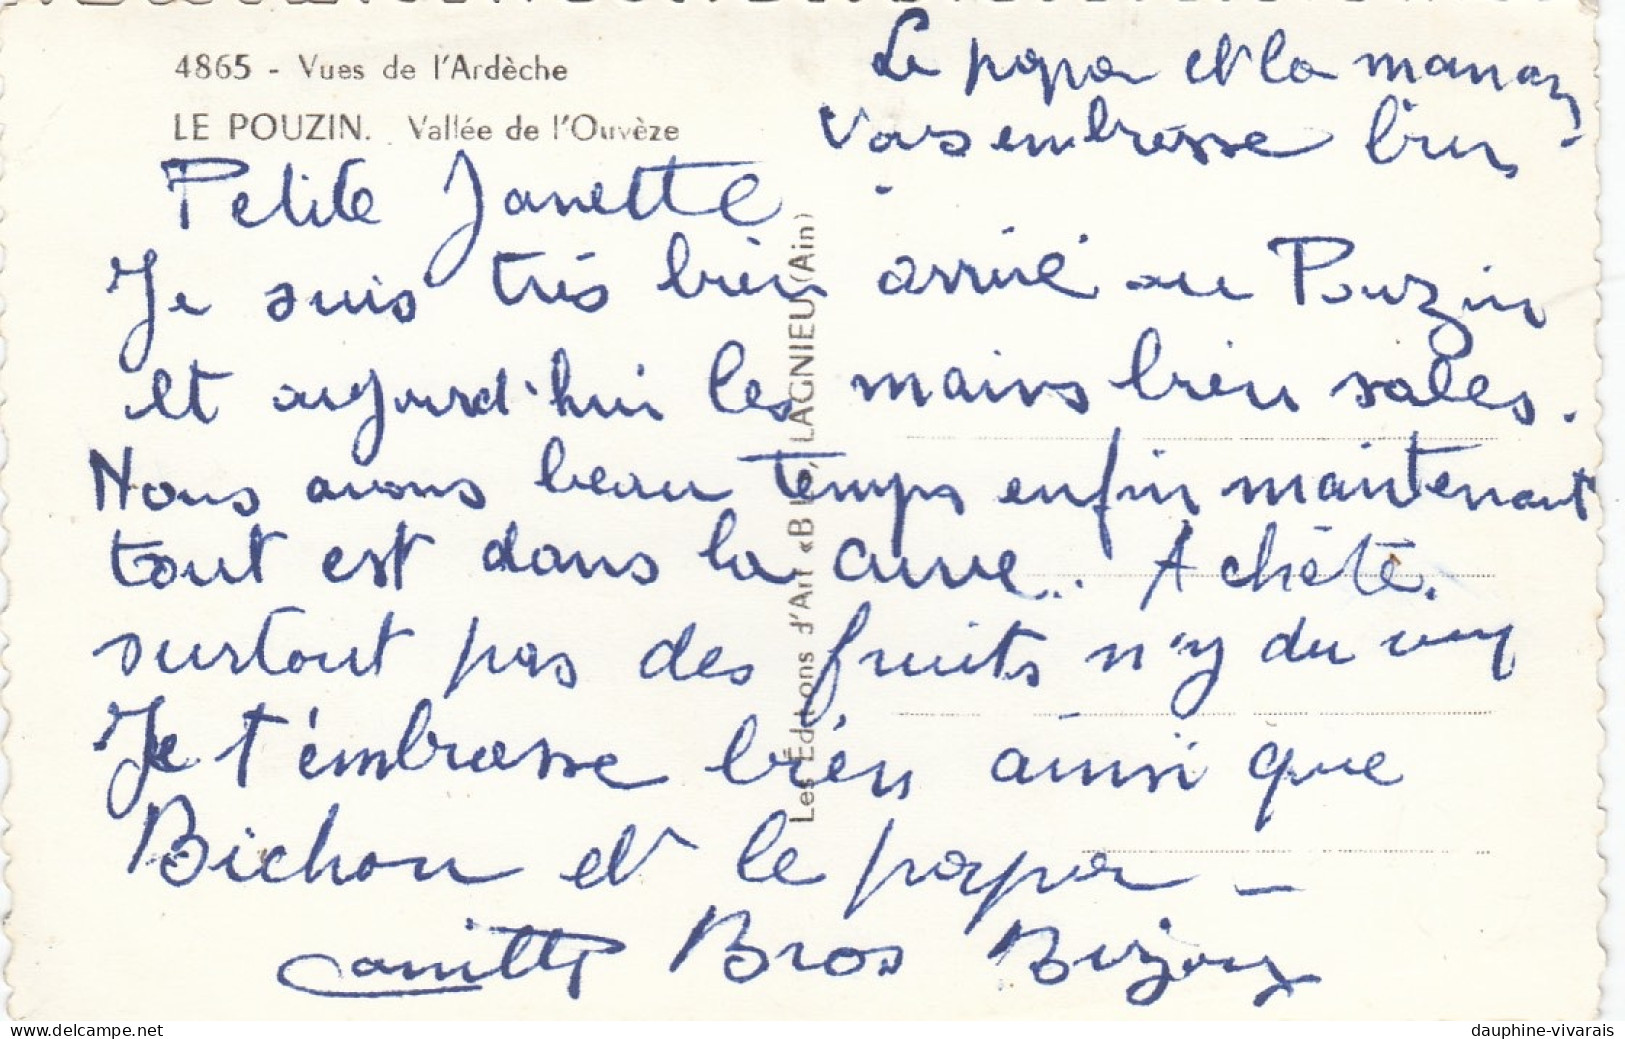 4865 - Vues de l'Ardèche
LE POUZIN. Vallée de l'Ouvèze
Le papa et la maman
vous embrasse bien
Petite Janette
Je suis très bien arrivé au Pouzin
et aujourd'hui les mains bien sales.
Nous avons beau temps enfin maintenant
tout est dans la cuve. Achète
surtout pas des fruits n'y du
Je t'embrasse bien ainsi que
Bichon et le papa -
Bros
Les Éditions d'Art «B LAGNIEU (Ain)
dauphine-vivarais
www.delcampe.net